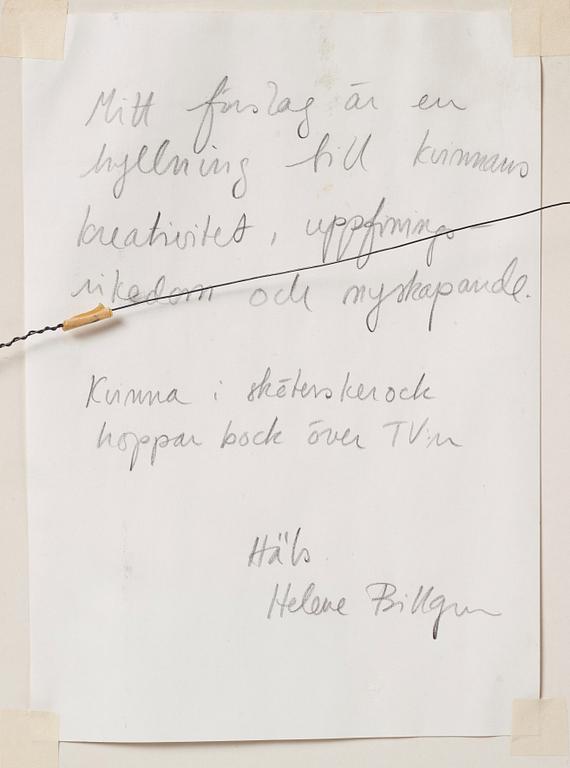 Mitt förslag är en
hyllning till kvinnans
kreativitet, uppfinnings-
rikedom och nyskapande.
Kvinna i sköterskerock
hoppar bock över TV:n
Häls
Helene Billgren